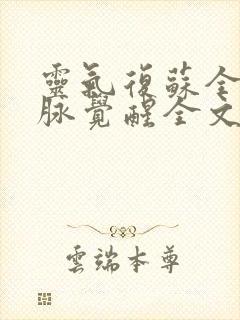 靈氣復蘇全
脈覺醒全文
雲端本尊